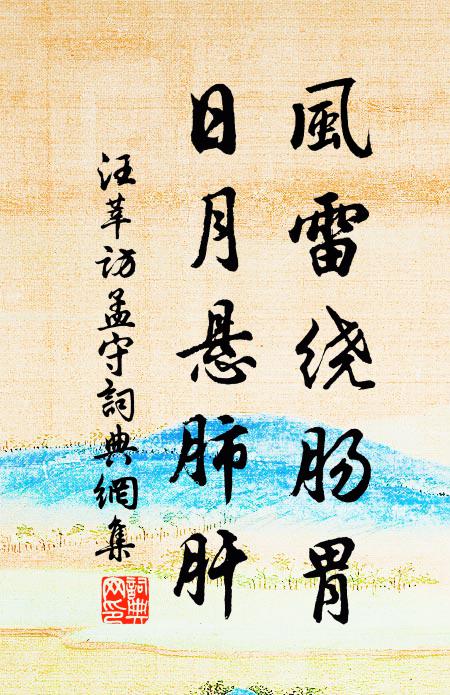 風雷绕肠胃
日月悬肺肝
汪莘访孟守詞典網集
詞典
网印